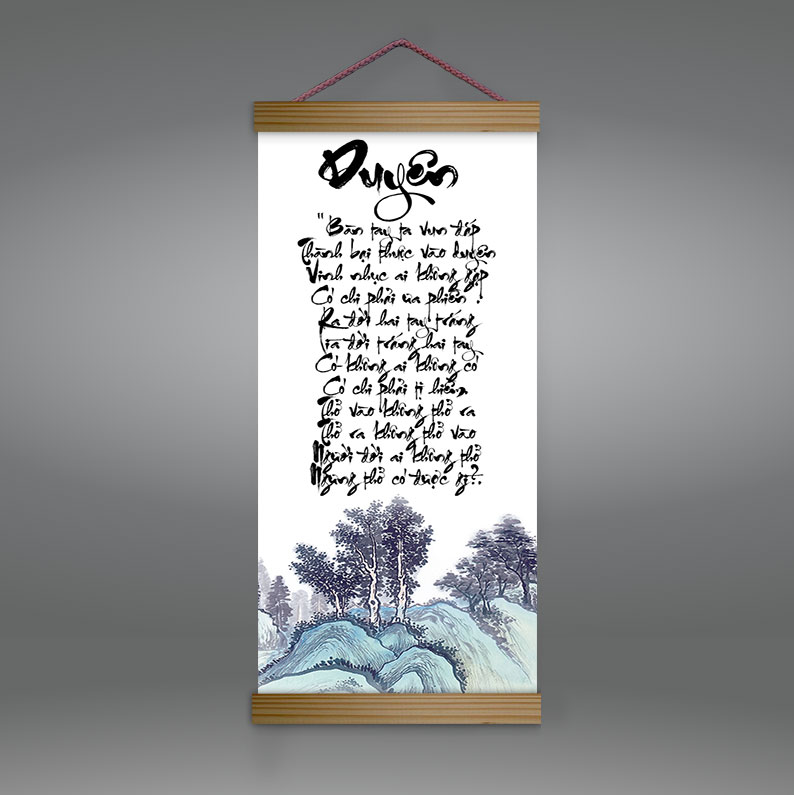 Duyên
"Bàn tay ta vun đắp
Thành bại thuộc vào duyên
Vinh nhục ai không gặp
Có chi phải ưa phiền.
Ra đời hai tay trắng
Lìa đời trắng hai tay
Có không ai không có
Có chi phải tị hiềm
Thở vào không thở ra
Thở ra không thở vào
Người đời ai không thở
Ngừng thở có được gì?.